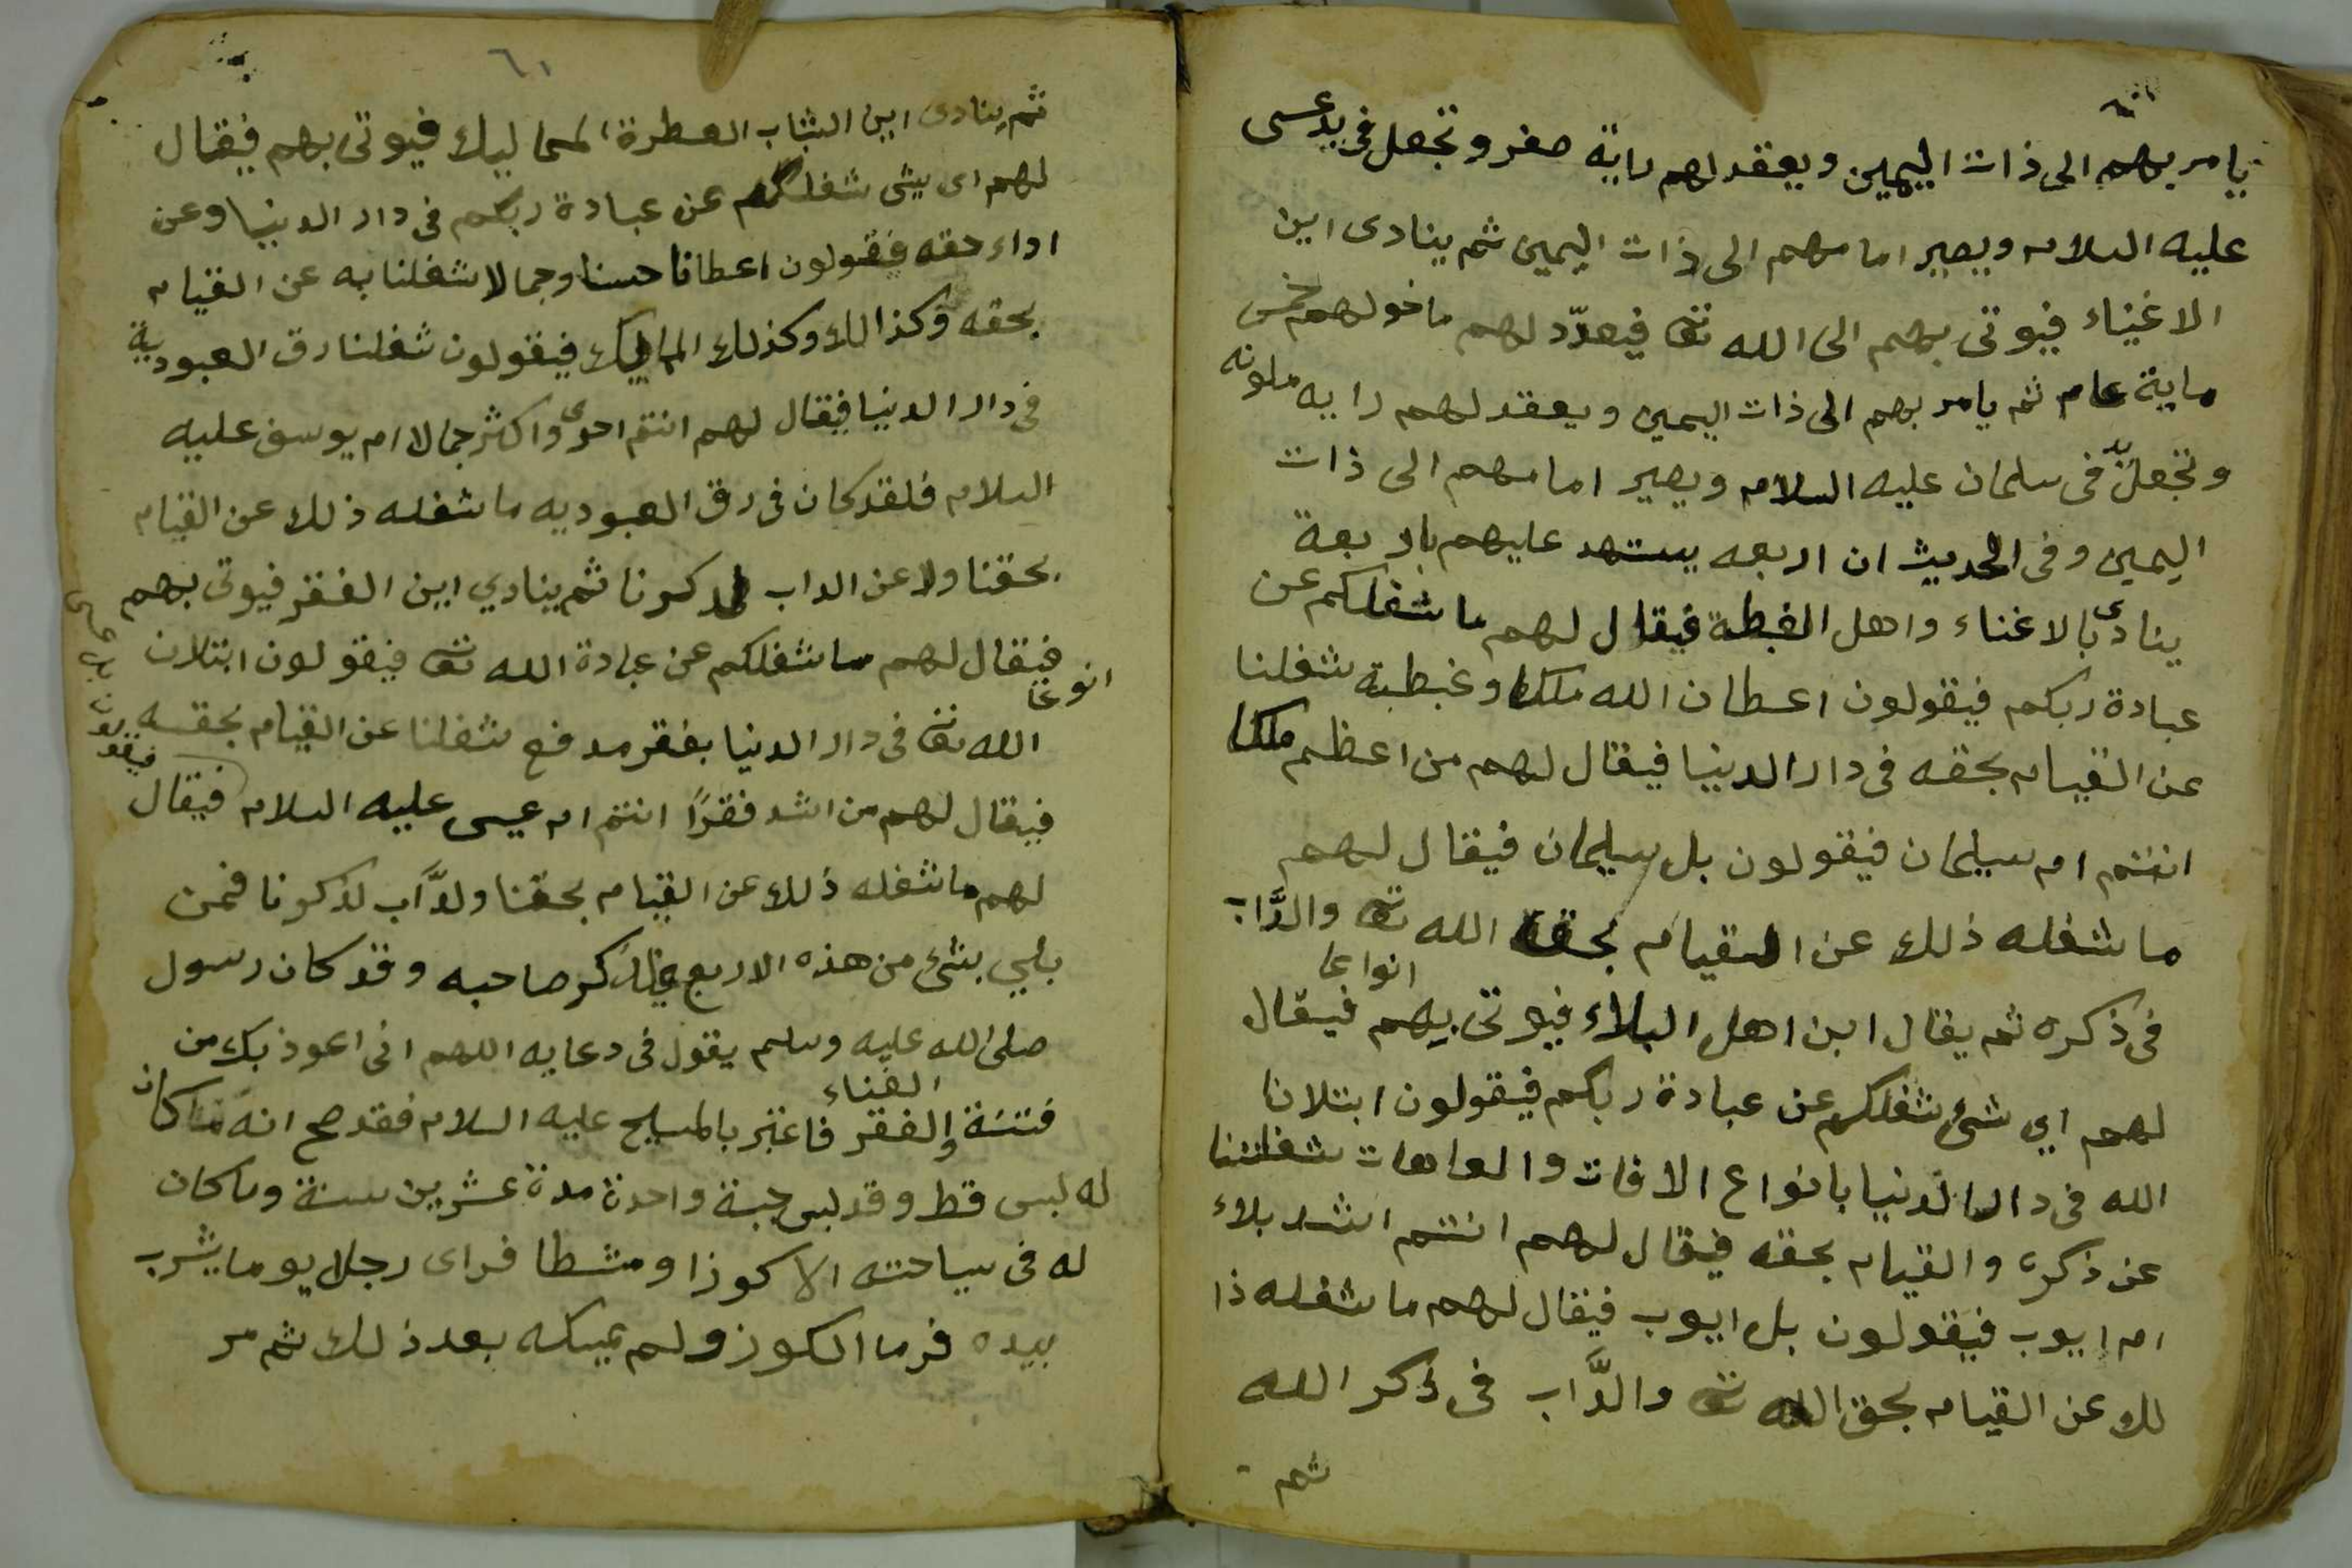 يامر بهم الى ذات اليمين ويعقد لهم راية صفر وتجعل فى يد عسى
عليه السلام ويصير امامهم الى ذات اليمين ثم ينادى اين
الاغنياء فيوتى بهم الى الله تعا فيعدّد لهم ما خولهم خمس
ماية عام ثم يامر بهم الى ذات اليمين ويعقد لهم رايه ملونه
وتجعل فى يد سلمان عليه السلام ويصير امامهم الى ذات
اليمين وفى الحديث ان اربعه يستهد عليهم باربعة
ينادى بالاغناء واهل الغبطة فيقال لهم ما شغلكم عن
عبادة ربكم فيقولون اعطان الله ملكا وغبطة شغلنا
عن القيام بحقه فى دار الدينا فيقال لهم من اعظم ملكا
انتم ام سيلمان فيقولون بل سيلمان فيقال لهم
ما شغله ذلك عن القيام بحق الله تعا والدَّاب
فى ذكره ثم يقال اين اهل البلاء انواعا فيوتى بهم فيقال
لهم اي شئ شغلكم عن عبادة ربكم فيقولون ابتلانا
الله فى دار الدنيا بانواع الافات والعاهات شغلتنا
عن ذكره والقيام بحقه فيقال لهم انتم اشد بلاء
ام ايوب فيقولون بل ايوب فيقال لهم ما شغله ذا
لك عن القيام بحق الله تعا والدَّاب فى ذكر الله
ثم
٦١
ثم ينادى اين الشاب العطرة المماليك فيوتى بهم فيقال
لهم اى شى شغلكم عن عبادة ربكم فى دار الدينا وعن
اداء حقه فيقولون اعطانا حسنا وجمالا شغلنا به عن القيام
بحقه وكذالك وكذلك المماليك فيقولون شغلنا رق العبودية
فى دار الدنيا فيقال لهم انتم احوى واكثر جمالا ام يوسف عليه
السلام فلقد كان فى رق العبوديه ما شغله ذلك عن القيام
بحقنا ولا عن الداب لذكرنا ثم ينادي اين الفقر فيوتى بهم
فيقال لهم ما شغلكم عن عبادة الله تعا فيقولون ابتلان
انوعا
الله تعا فى دار الدنيا بفقر مدفع شغلنا عن القيام بحقه
فيقال لهم من اشد فقرًا انتم ام عيسى عليه السلام فيقال
فيقولون بل عيسى
لهم ما شغله ذلك عن القيام بحقنا ولدَّاب لذكرنا فمن
بلي بشئ من هذه الاربع فليذكر صاحبه وقد كان رسول
صلى الله عليه وسلم يقول فى دعايه اللهم انى اعوذ بك من
فتنة الغناء والفقر فاعتبر بالمسيح عليه السلام فقد صح انه ما كان
له لبس قط وقد لبس جبة واحدة مدة عشرين سنة وما كان
له فى سياحته الا كوزا ومشطا فراى رجلا يوما يشرب
بيده فرما الكوز ولم يمسكه بعد ذلك ثم مر